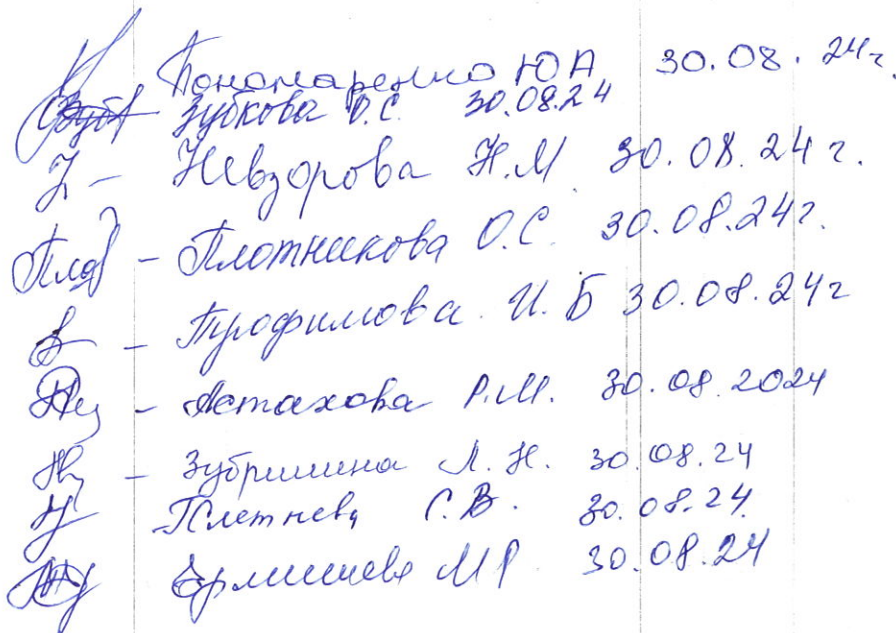 Пономаренко Ю А 30.08.24г.
Зубкова О.С. 30.08.24
Невзорова Н.М 30.08.24г.
Плотникова О.С. 30.08.24г.
Трофимова И.Б 30.08.24г
Астахова Р.М. 30.08.2024
Зубришина Л.Н. 30.08.24
Плетнева С.В. 30.08.24.
М Р 30.08.24